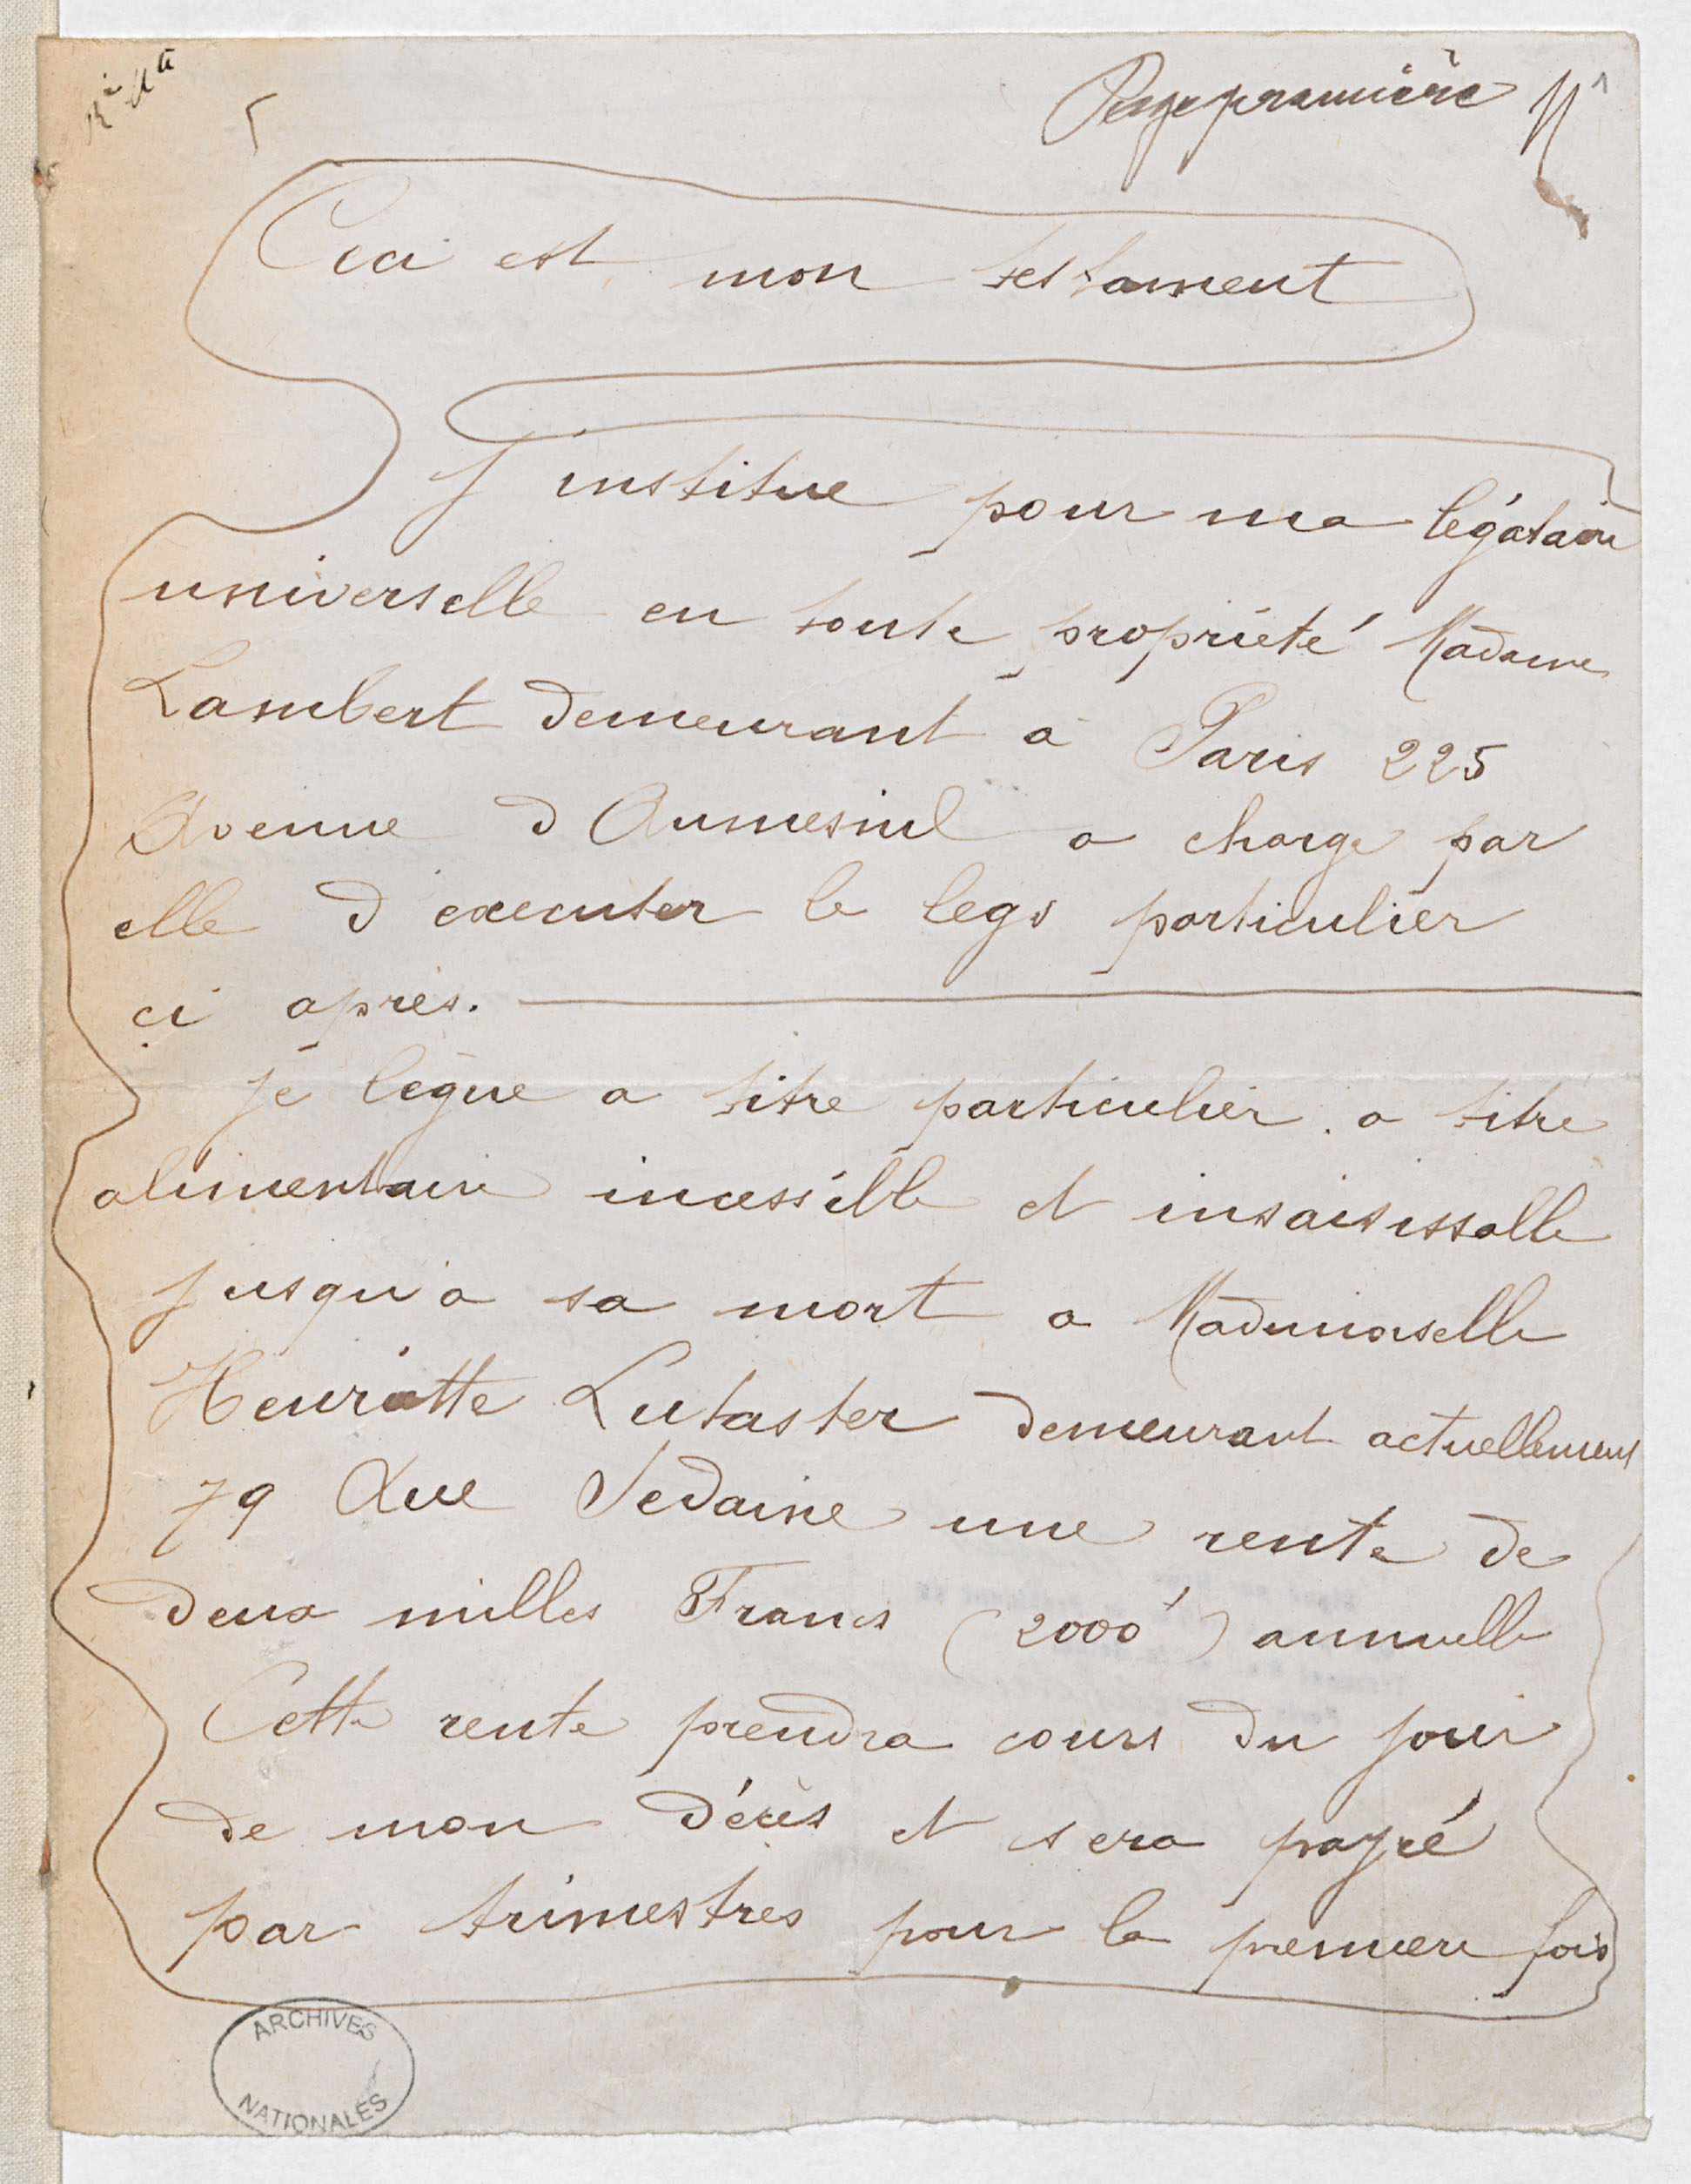 Page première
Ceci est mon testament
J institue pour ma légataire
universelle en toute propriété Madame
Lambert demeurant à Paris 225
Avenue d Aumesnil a charge par
elle d executer le legs particulier
ci après.
Je lègue a titre particulier a titre
alimentaire incessible et insaisissable
jusqu'a sa mort a Mademoiselle
Henriette Lutaster demeurant actuellement
79 Rue Sedaine une rente de
deux milles Francs (2000f) annuelle
Cette rente prendra cours du jour
de mon décès et sera payé
par trimestres pour la premiere fois
ARCHIVES
NATIONALES